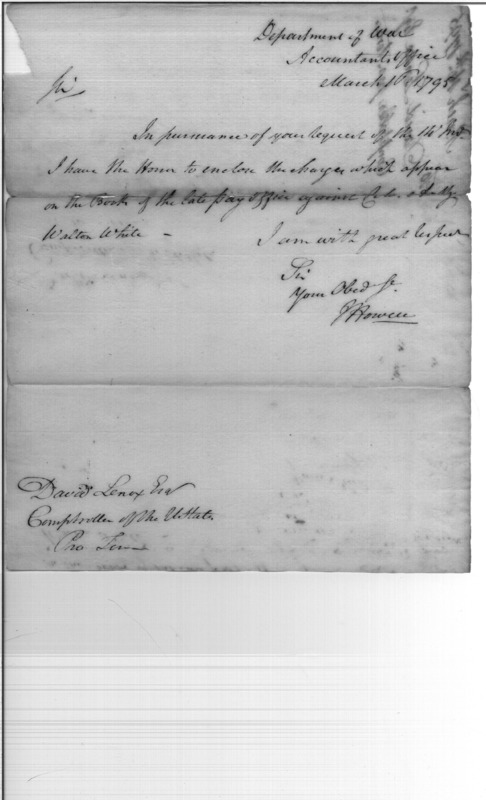 Department of War
Accountants Office
March 16th 1795
Sir
In pursuance of your request of the 14th Inst.
I have the Honor to enclose the charges which appear
on the Books of the late Pay Office against Col.
Walton White –
I am with great respect
Sir
Your Obed St.
J Howell
David Lenox Esqr
Comptroller of the U States
Pro Tem